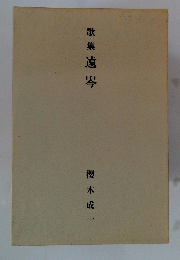 歌集 遠岑
櫻木成一